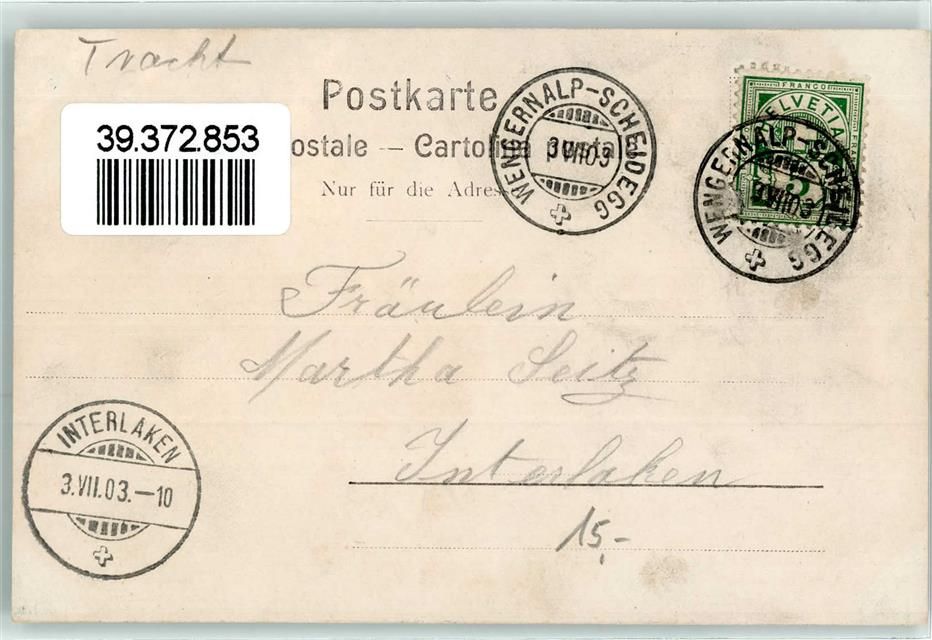 Tracht
39.372.853
Postkarte
ostale — Cartolina postal
Nur für die Adres
WENGERNALP-SCHEIDEGG
VII 03
FRANCO
HELVETIA
5
WENGERNALP-SCHEIDEGG
VII 03
Fräulein
Martha Seitz
Interlaken
15,-
INTERLAKEN
3.VII.03.—10